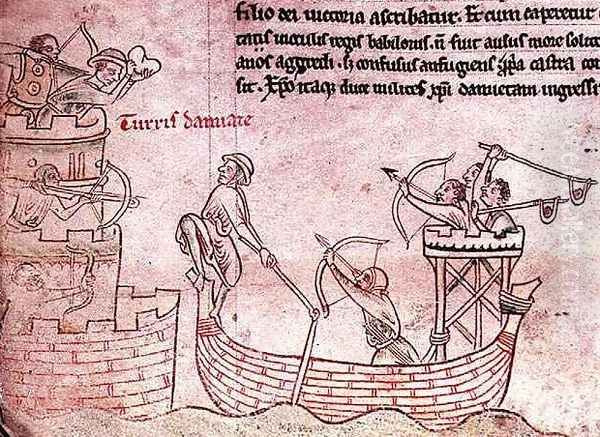 filio dei uictoria ascribatur. Et cum caperetur
tatis uiculis regis babilonis. n̄ fuit ausus more solito
anos aggredi. s; confusus aufugiens castra
sit. Xp̄o itaq; duce milites xp̄i damietam ingressi
Turris damiate